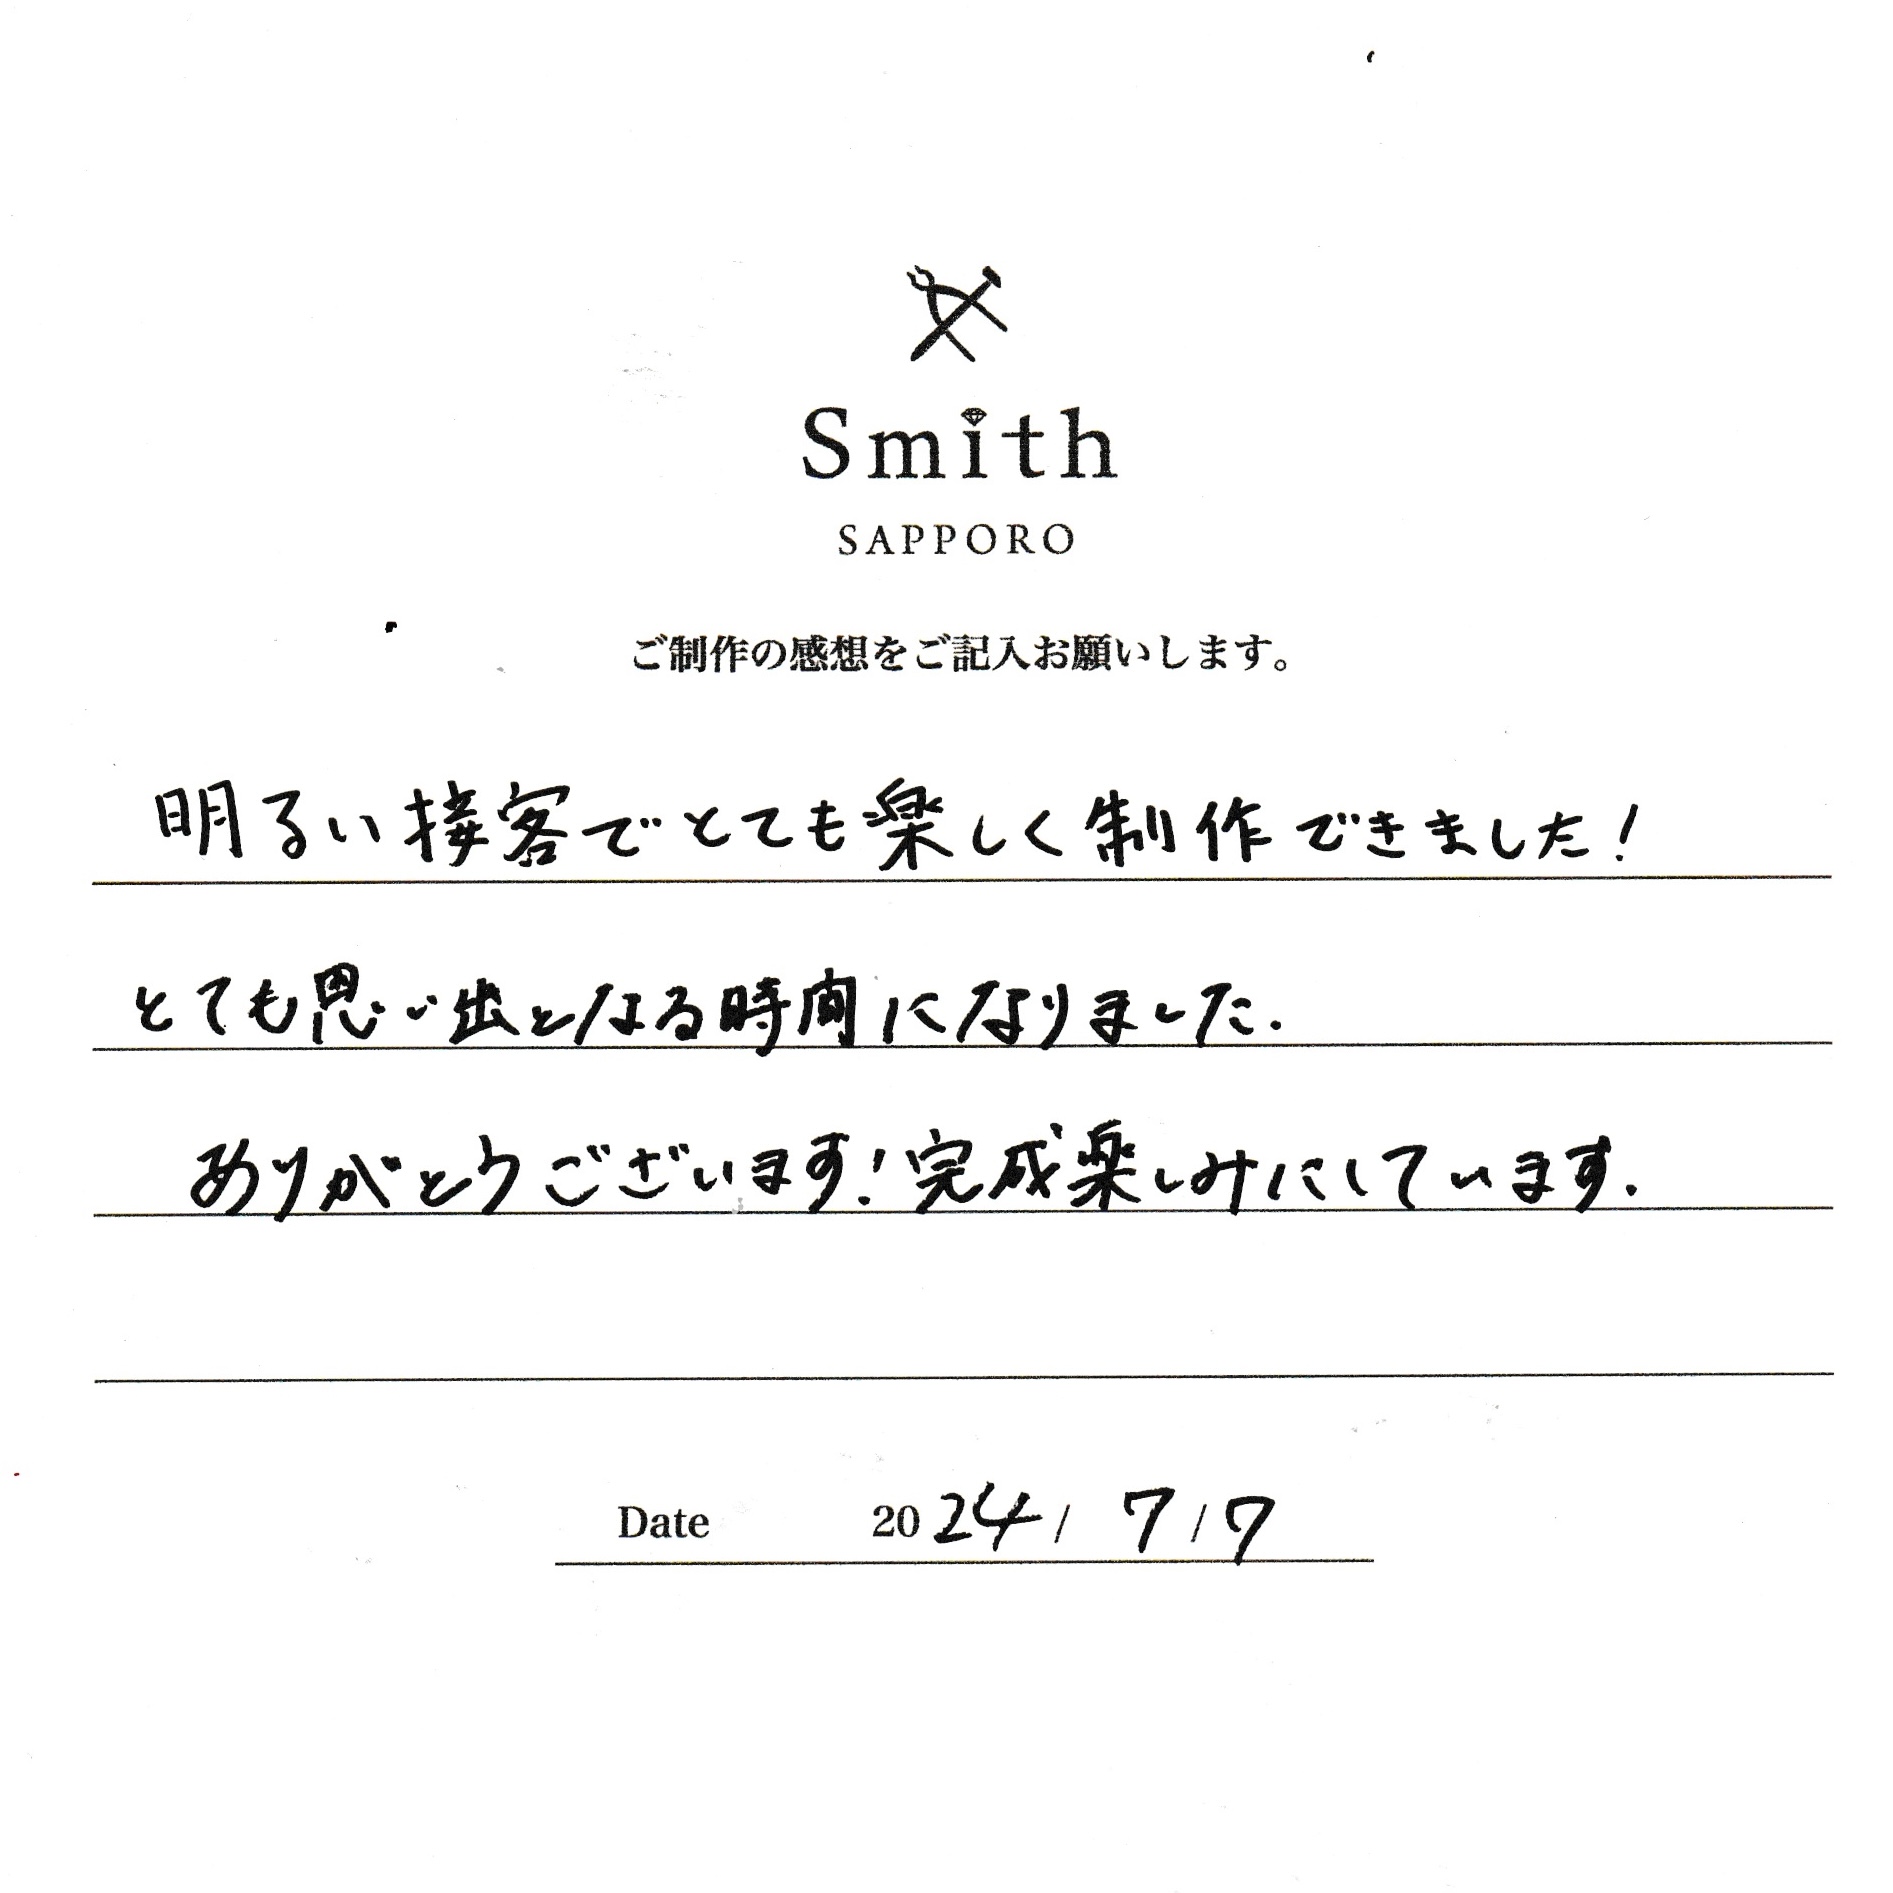 Smith
SAPPORO
ご制作の感想をご記入お願いします。
明るい接客でとても楽しく制作できました!
とても思い出となる時間になりました.
ありがとうございます!完成楽しみにしています.
Date 2024/7/7